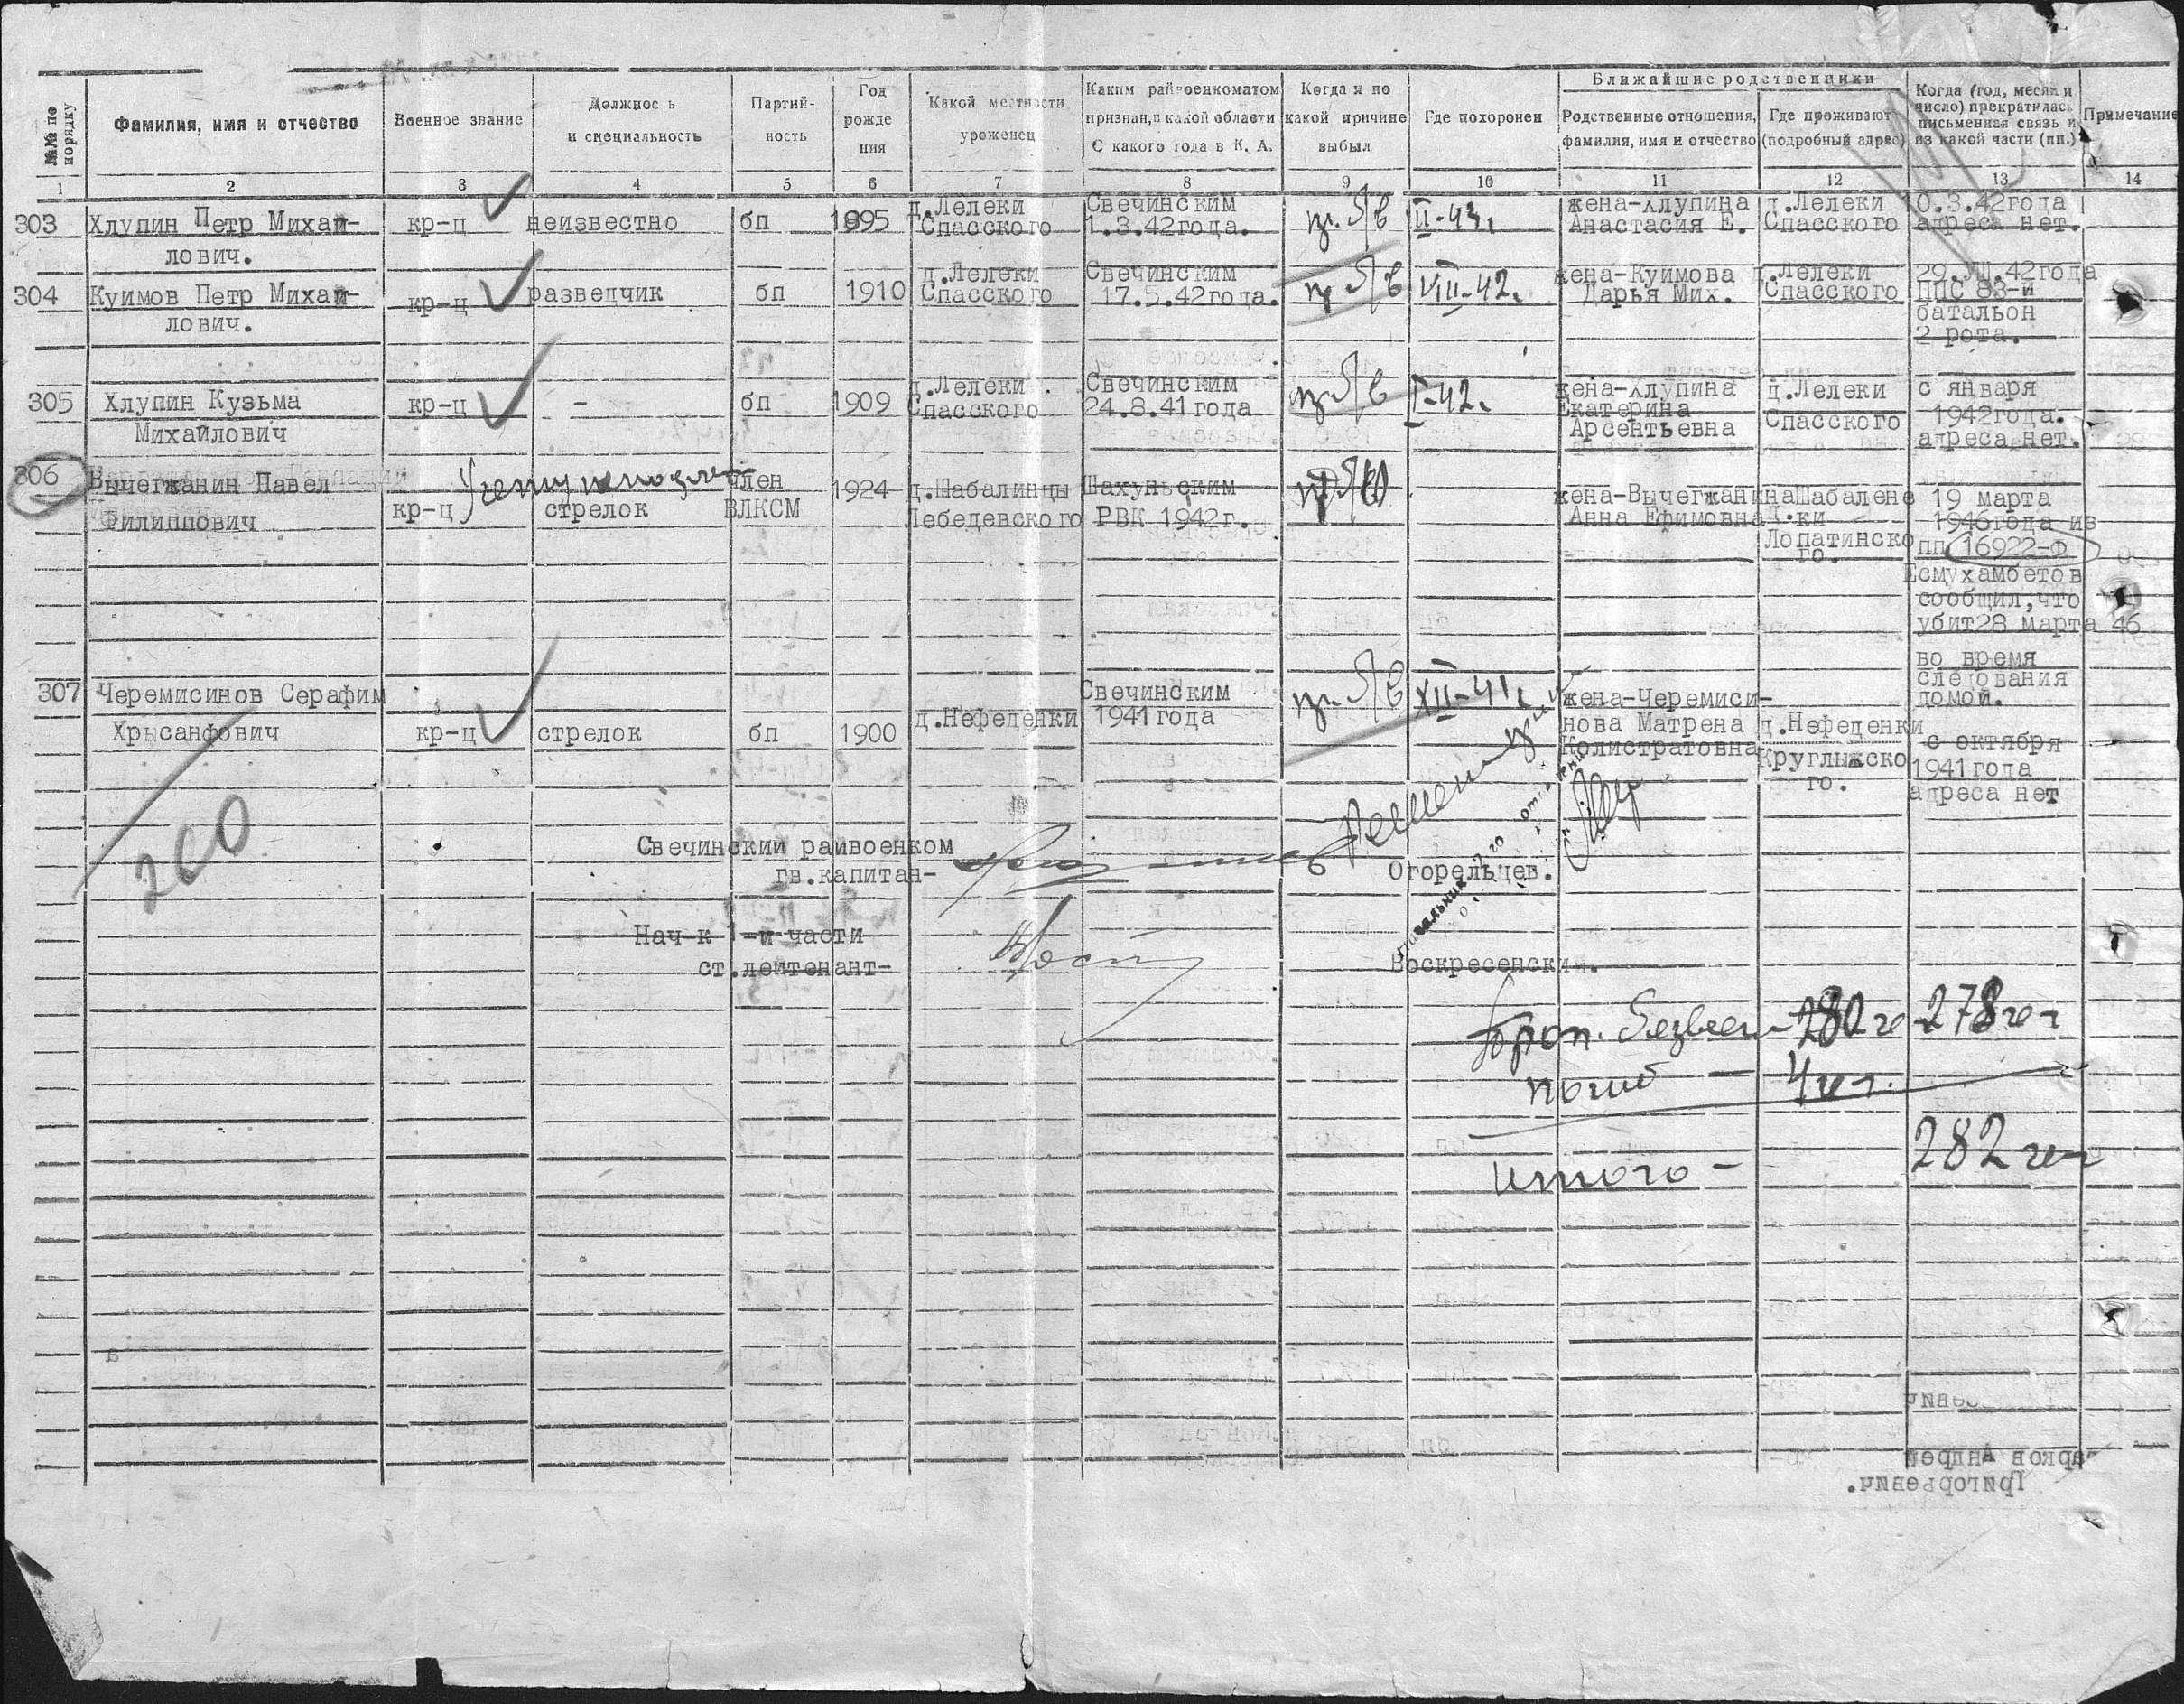 №№ по порядку
Фамилия, имя и отчество
Военное звание
Должнос ь
и специальность
Партий-
ность
Год
рожде
ния
Какой местности
уроженец
Каким райвоенкоматом
призван, в какой области
С какого года в К. А.
Когда и по
какой причине
выбыл
Где похоронен
Ближайшие родственники
Родственные отношения,
фамилия, имя и отчество
Где проживают
(подробный адрес)
Когда (год, месяц и
число) прекратилась
письменная связь и
из какой части (пп.)
Примечание
1 2 3 4 5 6 7 8 9 10 11 12 13 14
303
Хлупин Петр Михай-
лович.
кр-ц
неизвестно
бп
1895
д.Лелеки
Спасского
Свечинским
1.3.42года.
пр. б/в
II-43г
жена-Хлупина
Анастасия Е.
д.Лелеки
Спасского
0.3.42года
адреса нет.
304
Куимов Петр Михай-
лович.
кр-ц
разведчик
бп
1910
д.Лелеки
Спасского
Свечинским
17.5.42года.
пр б/в
VIII-42г
жена-Куимова
Дарья Мих.
д.Лелеки
Спасского
29.VII.42года
ППС 83-й
батальон
2 рота.
305
Хлупин Кузьма
Михайлович
кр-ц
-
бп
1909
д.Лелеки
Спасского
Свечинским
24.8.41года
пр. б/в
I-42г
жена-Хлупина
Екатерина
Арсентьевна
д.Лелеки
Спасского
с января
1942года.
адреса нет.
306
Вычегжанин Павел
Филиппович
кр-ц
стрелок
член
ВЛКСМ
1924
д.Шабалинцы
Лебедевского
Шахуньским
РВК 1942г.
жена-Вычегжанина
Анна Ефимовна
Шабалене
д.ки
Лопатинско
го.
19 марта
1946года из
пп 16922-Ф
Есмухамбетов
сообщил,что
убит28 марта 46
во время
следования
домой.
307
Черемисинов Серафим
Хрысанфович
кр-ц
стрелок
бп
1900
д.Нефеденки
Свечинским
1941года
пр. б/в
XII-41г
жена-Черемиси-
нова Матрена
Колистратовна
д.Нефеденки
Круглыжско
го.
с октября
1941года
адреса нет
260
Свечинский райвоенком
гв.капитан-
Огорельцев.
Нач-к 1-й части
ст.лейтенант-
Воскресенский.
Начальник
проп. безвест - 280 че 278 чел
погиб - 4 чел.
итого - 282 чел
Григорьевич.